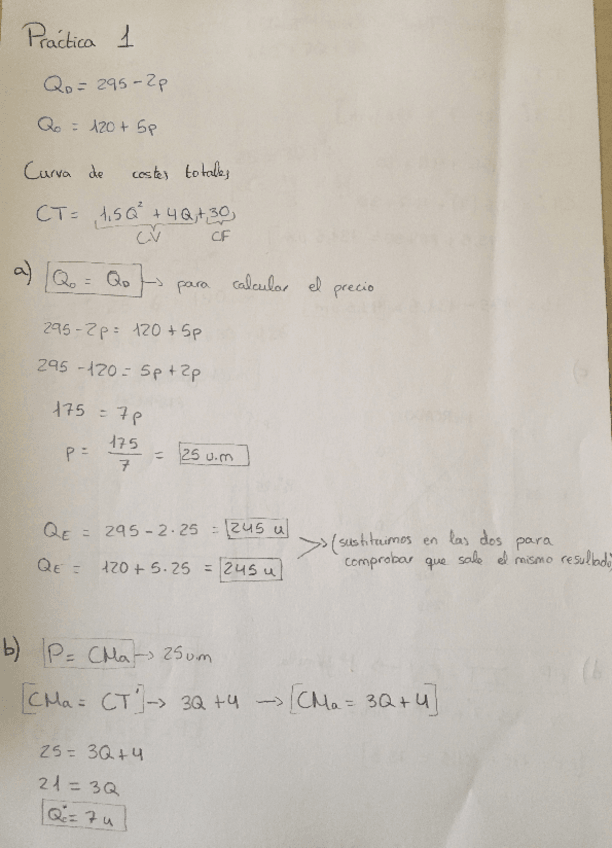 Práctica 1
Q_D = 295 - 2p
Q_O = 120 + 5p
Curva de costes totales
CT = 1,5Q² + 4Q + 30
CV CF
a) Q_O = Q_D → para calcular el precio
295 - 2p = 120 + 5p
295 - 120 = 5p + 2p
175 = 7p
p = 175/7 = 25 u.m
Q_E = 295 - 2·25 = 245 u
Q_E = 120 + 5·25 = 245 u
(sustituimos en las dos para
comprobar que sale el mismo resultado)
b) P = CMa → 25 um
[CMa = CT'] → 3Q + 4 → [CMa = 3Q + 4]
25 = 3Q + 4
21 = 3Q
= 7 u